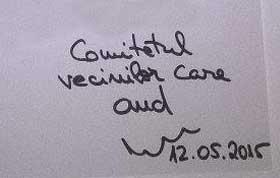 Comitetul
vecinilor care
aud
12.05.2015